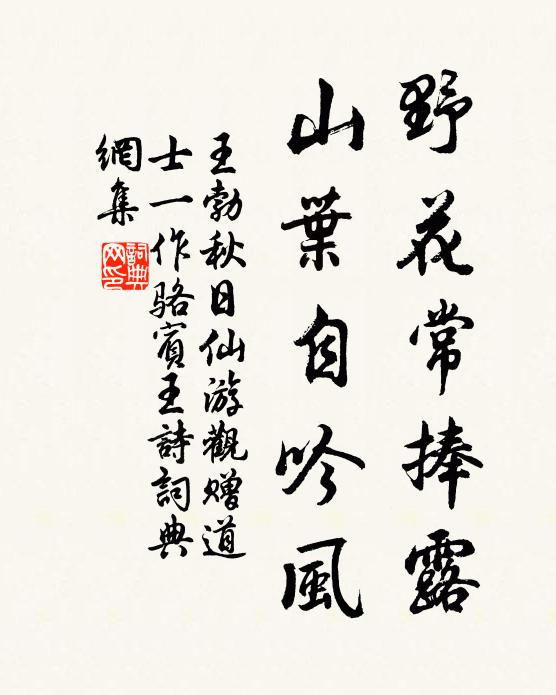 野花常捧露
山葉自吟風
王勃秋日仙游觀贈道
士一作駱賓王詩詞典
網集
詞典網印